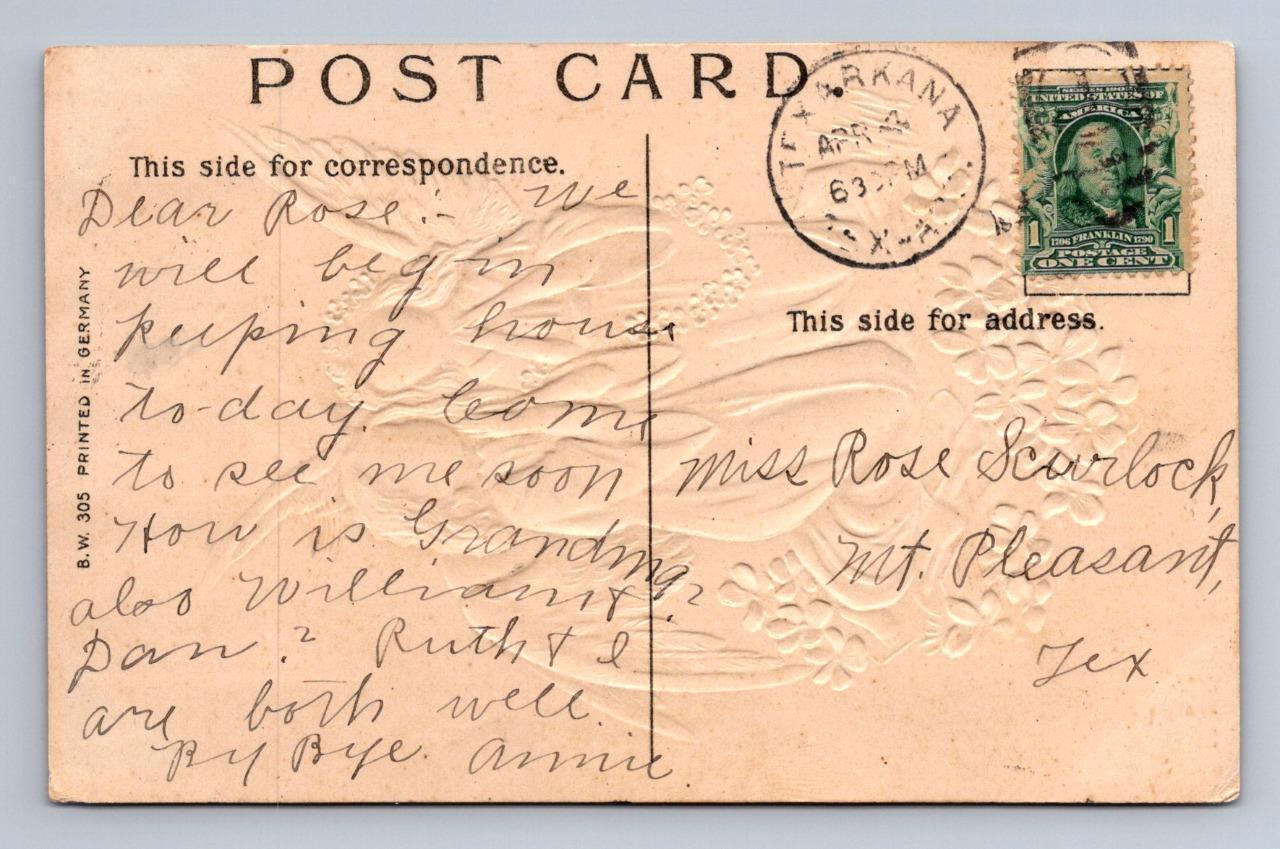 POST CARD
This side for correspondence.
Dear Rose:- We
will begin
keeping house
to-day. Come
to see me soon
How is Grandma?
also William &
Dan? Ruth & I
are both well.
By Bye. Annie
B.W. 305 PRINTED IN GERMANY
TEXARKANA
APR 4
630PM
SERIES 1902
UNITED STATES OF
AMERICA
1 1
1706 FRANKLIN 1790
POSTAGE
ONE CENT
This side for address.
Miss Rose Scurlock,
Mt. Pleasant,
Tex